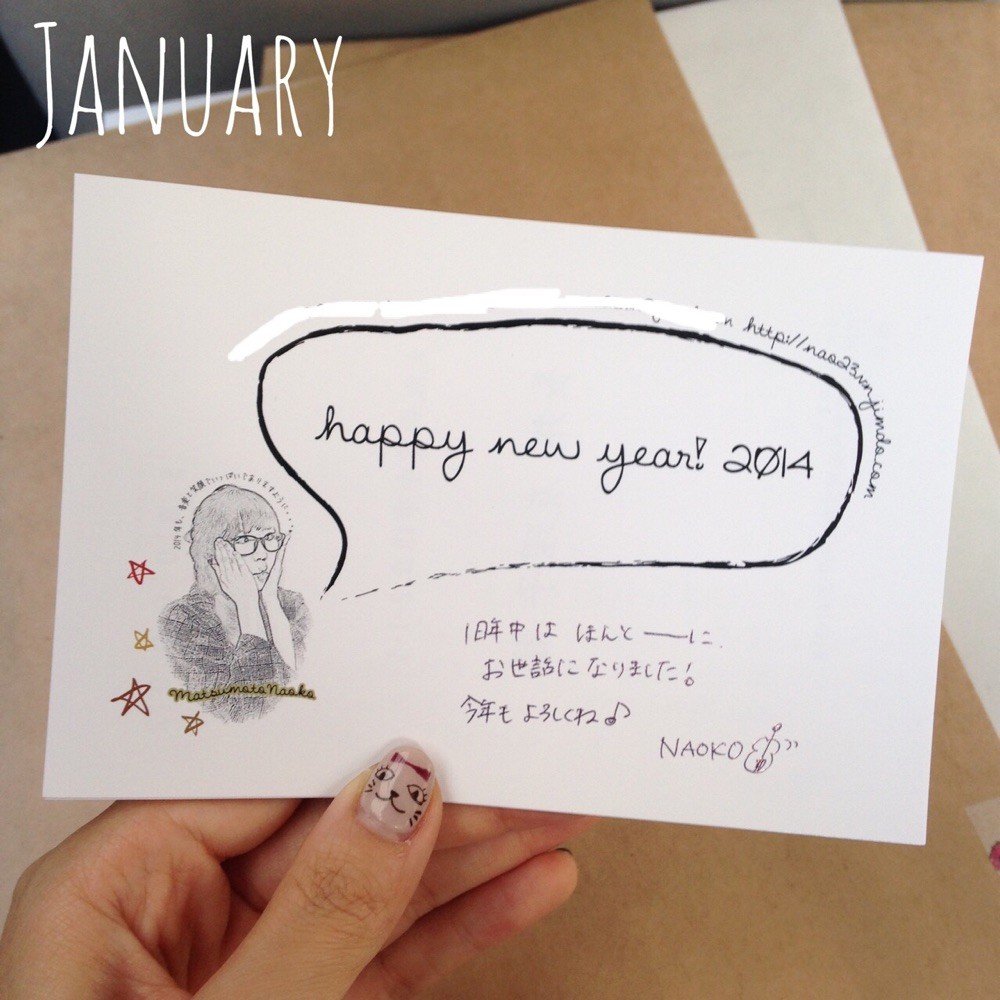 JANUARY
http://nao23vn.jimdo.com
happy new year! 2014
2014年も、音楽と笑顔でいっぱいでありますように・・・
MatsumotoNaoko
旧年中は ほんとーーに
お世話になりました!
今年も よろしくね♪
NAOKO